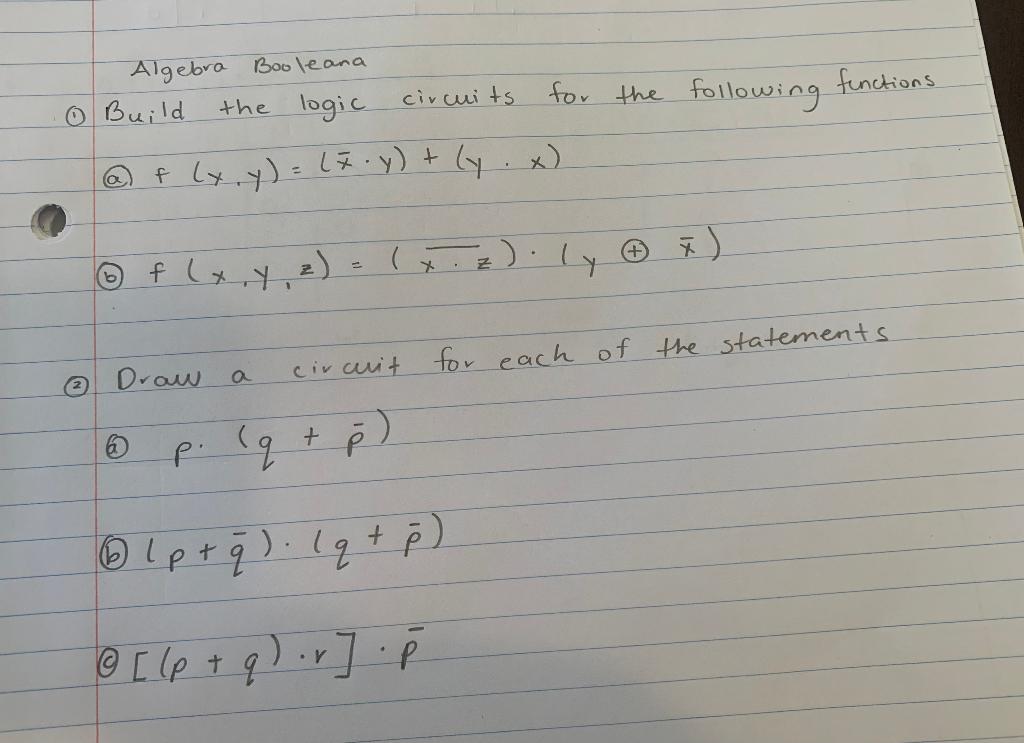 Algebra Booleana
① Build the logic circuits for the following functions
ⓐ f (x, y) = (x̄ · y) + (y · x)
ⓑ f (x, y, z) = (x̅ ̅·̅ ̅z̅) · (y ⊕ x̄)
② Draw a circuit for each of the statements
ⓐ p · (q + p̄)
ⓑ (p + q̄) · (q + p̄)
ⓒ [(p + q) · r] · p̄